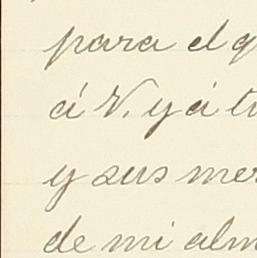 para el q
á V. y á t
y sus mer
de mi alm